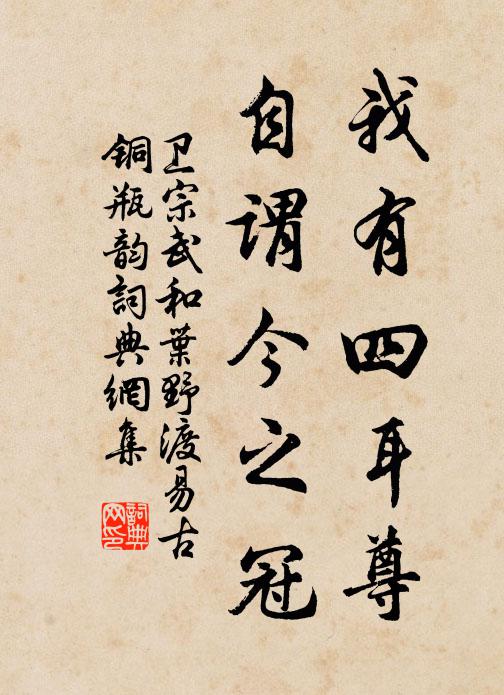 我有四耳尊
自谓今之冠
卫宗武和葉野渡易古
铜瓶韵詞典網集
詞典网印